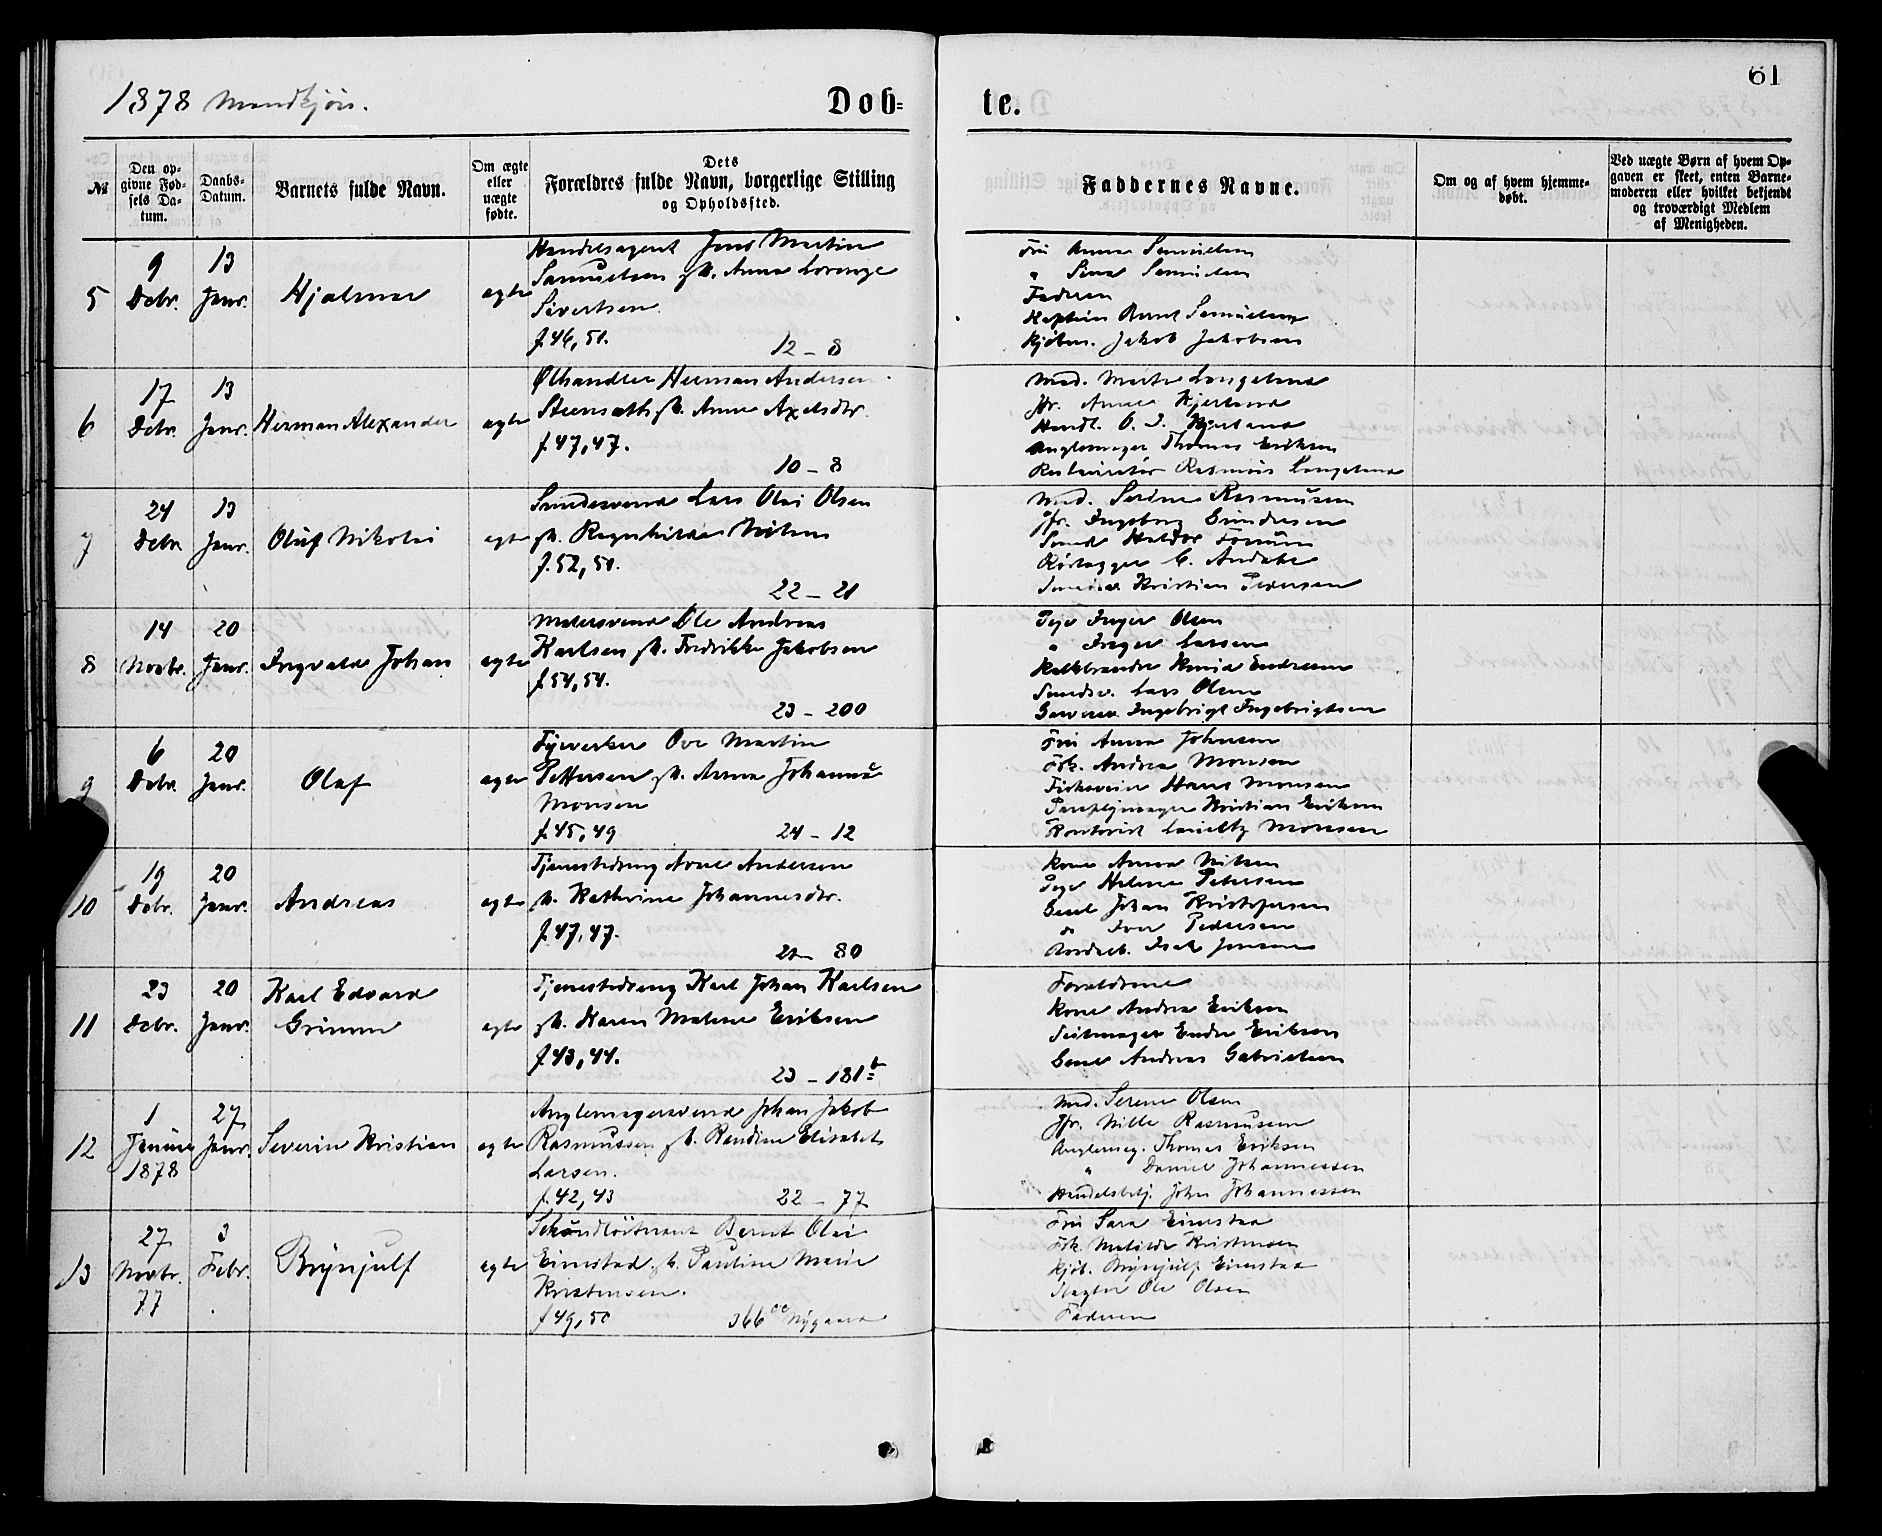 61
1878 Mandkjön.
Döb- te.
№
Den opgivne Fødsels Datum.
Daabs-Datum.
Barnets fulde Navn.
Om ægte eller uægte fødte.
Dets Forældres fulde Navn, borgerlige Stilling og Opholdssted.
Faddernes Navne.
Om og af hvem hjemmedøbt.
Ved uægte Børn af hvem Opgaven er skeet, enten Barnemoderen eller hvilket bekjendt og troværdigt Medlem af Menigheden.
5
9 Debr.
13 Janr.
Hjalmar
ægte
Handelsagent Jens Martin
Samuelsen Anna Lorenze
Sivertsen
f. 46, 51.
12 - 8
Fru Anna Samuelsen
" Sina Samuelsen
Faderen
Kaptein Samuelsen
Kjøbm. Jakob Jakobsen
6
17 Debr.
13 Janr.
Herman Alexander
ægte
Ølhandler Herman Andersen
Anna Axelsdtr.
f. 47, 47.
10 - 8
Mad. Langeland
Jfr. Anna Hjertaas
Handl. O. J.
Anglemager Thomas Eriksen
Rasmus Langeland
7
24 Debr.
13 Janr.
Oluf Nikolai
ægte
Smedesvend Lars Olai Olsen
Ragnhilda Nilsen
f. 52, 51.
22 - 21
Mad. Serine Rasmussen
Jfr. Ingeborg
Smed Haldor
Smedsv. Kristian Pedersen
8
14 Novbr.
20 Janr.
Ingvald Johan
ægte
Malersvend Ole Andreas
Karlsen Fredrikke Jakobsen
f. 54, 54.
23 - 200
Pige Inger Olsen
" Inger Larsen
Kalkbrænder Endresen
Smedsv. Lars Olsen
Ingebrigt Ingebrigtsen
9
6 Debr.
20 Janr.
Olaf
ægte
Fyrverker Ove Martin
Pettersen Anna Johanna
Monsen
f. 45, 49
24 - 12
Fru Anna Johnsen
Frk. Andrea Monsen
Hans Monsen
Paraplymager Kristian Eriksen
Kontorist Monsen
10
19 Debr.
20 Janr.
Andreas
ægte
Tjenestedreng Arne Andersen
Kathrine Johannesdtr.
f. 47, 47.
21 80
Kone Anna Nilsen
Pige Helene Petersen
Johan Kristofersen
" Iver Pedersen
Isak Jensen
11
23 Debr.
20 Janr.
Karl Edvard
Grimm
ægte
Tjenestedreng Karl Johan Karlsen
Karen Malene Eriksen
f. 43, 44.
23 - 181 b
Forældrene
Kone Andrea Eriksen
Seilmager Endre Eriksen
Andreas Gabrielsen
12
1 Januar 1878
27 Janr.
Severin Kristian
ægte
Anglemagersvend Johan Jakob
Rasmussen Randine Elisabet
Larsen.
f. 42, 43
22 - 77
Mad. Serene Olsen
Jfr. Nille Rasmussen
Anglemag. Thomas Eriksen
" Daniel Johannessen
Handelsbetj. John Johannessen
13
27 Novbr. 77
3 Febr.
Brynjulf
ægte
Bernt Olai
Einestad Pauline Marie
Kristensen.
f 49, 50
366 Nygaard
Fru Sara Einestad
Frk. Matilde Kristensen
Kjøb. Brynjulf Einestad
Slagter Ole Olsen
Faderen